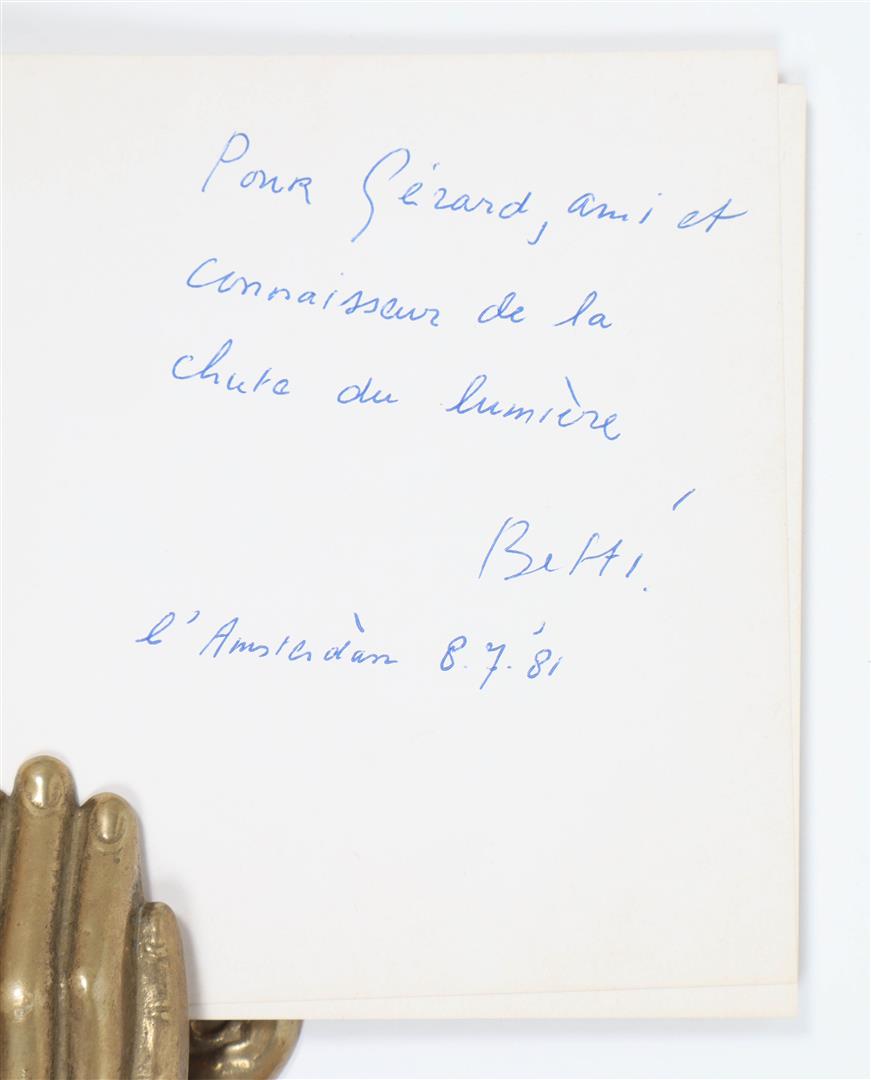 Pour Gérard, ami et
connaisseur de la
chute du lumière
Betti
l'Amsterdàm 8.7.'81